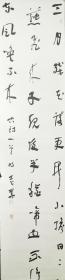 三月殘花落更開小檐日日
燕飛來子規夜半猶啼血不信
東風喚不回